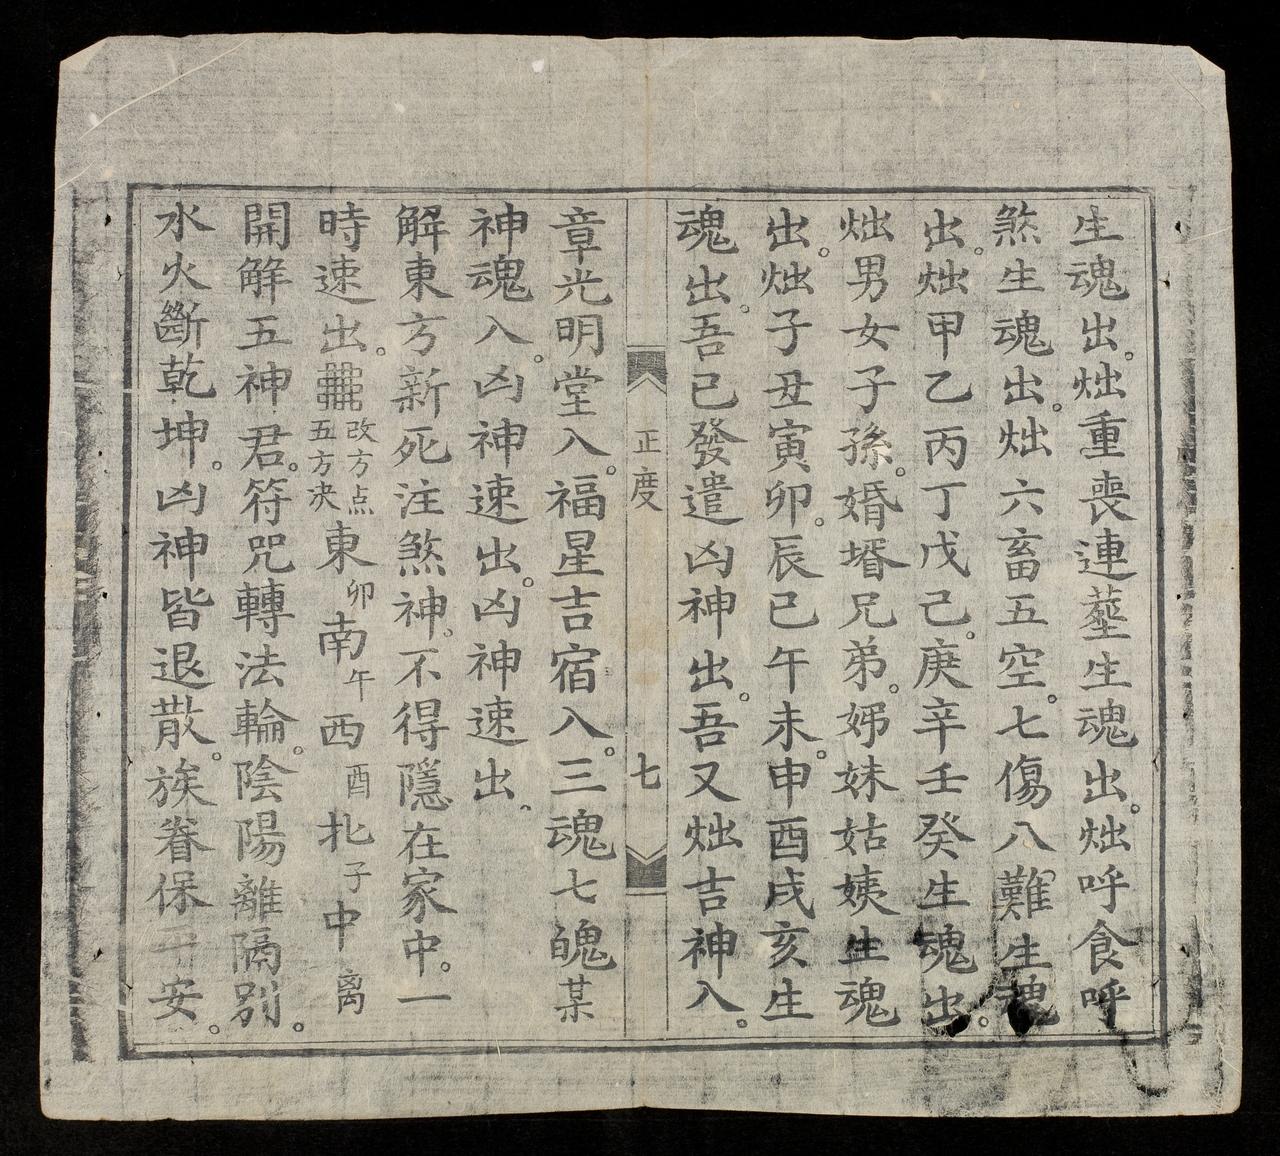 生魂出。炪重喪連塟生魂出。炪呼食呼
煞生魂出。炪六畜五空。七傷八難生魂
出。炪甲乙丙丁戊己。庚辛壬癸生魂出。
炪男女子孫。婚壻兄弟。姊妹姑姨生魂
出。炪子丑寅卯。辰巳午未。申酉戌亥生
魂出。吾已發遣凶神出。吾又炪吉神入。
正度 七
章光明堂入。福星吉宿入。三魂七魄某
神魂入。凶神速出。凶神速出。
解東方新死注煞神。不得隱在家中。一
時速出。改方点五方夬東卯南午西酉北子中离
開解五神君。符咒轉法輪。陰陽離隔別。
水火斷乾坤。凶神皆退散。族眷保平安。